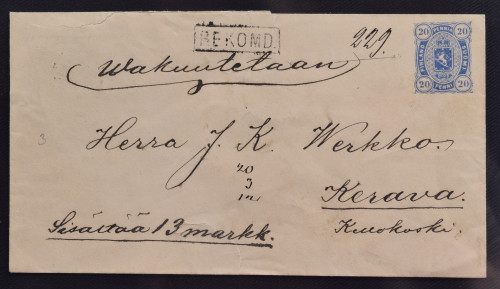 REKOMD.
229.
20 PENNI 20
FINLAND SUOMI
20 PENNIÄ 20
Wakuutetaan
3
Herra J. K. Werkko.
20
3
Kerava.
Sisältää 13 markk.